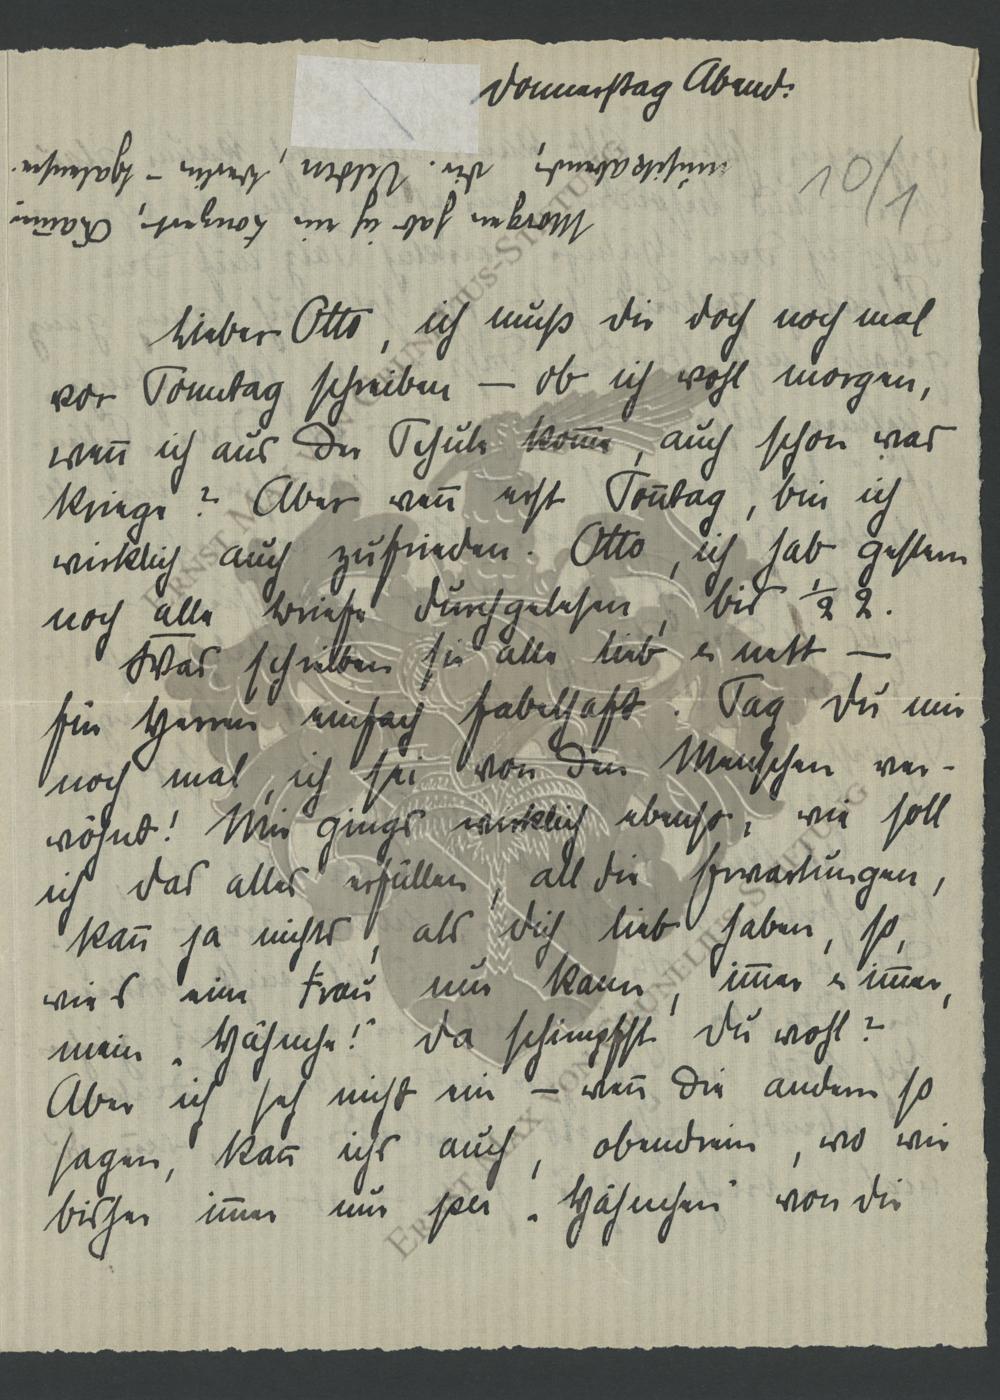 Donnerstag Abend.
10/1
Morgen hab ich ein Konzert, Kammer-
musikabend,
Lieber Otto, ich muß dir doch noch mal
vor Sonntag schreiben — ob ich wohl morgen,
wen̄ ich aus der Schule kom̄e, auch schon was
kriege? Aber wen̄ erst Son̄tag, bin ich
wirklich auch zufrieden. Otto, ich hab gestern
noch alle Briefe durchgelesen, bis ½ 2.
Was schreiben sie alle lieb & nett —
für Herrn einfach fabelhaft. Sag Du mir
noch mal, ich sei von den Menschen ver-
wöhnt! Mir gings wirklich ebenso, wie soll
ich das alles erfüllen, all die Erwartungen,
kan̄ ja nichts, als dich lieb haben, so,
wies eine Frau nur kann, im̄er & im̄er,
mein „Hähnche!" Da schimpfst Du wohl?
Aber ich seh nicht ein — wen̄ die andern so
sagen, kan̄ ichs auch, obendrein, wo wir
bisher im̄er nur per „Hähnchen" von dir
ERNST MAX VON GRUNELIUS-STIFTUNG
ERNST MAX VON GRUNELIUS-STIFTUNG